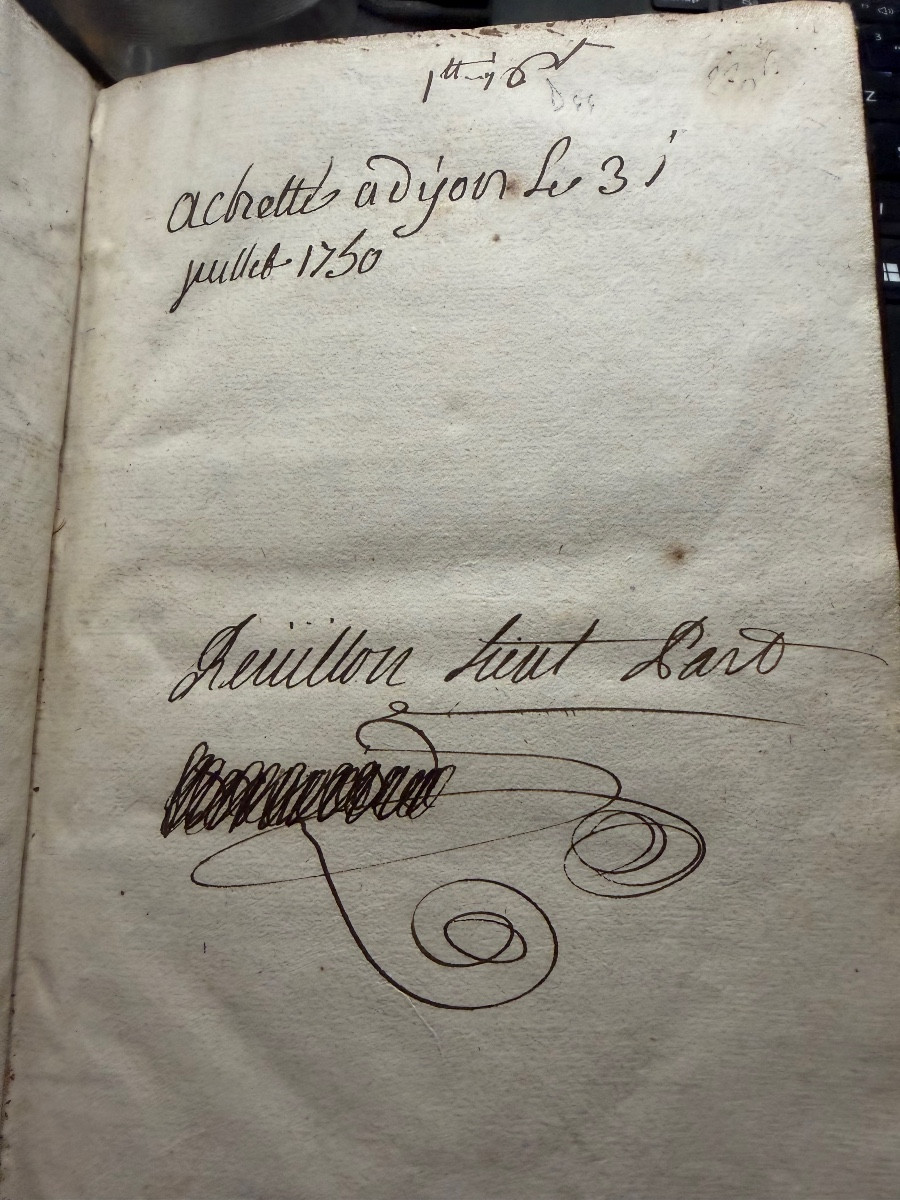 achetté a dijon Le 31
juillet 1750
Reüillon Lieut Part